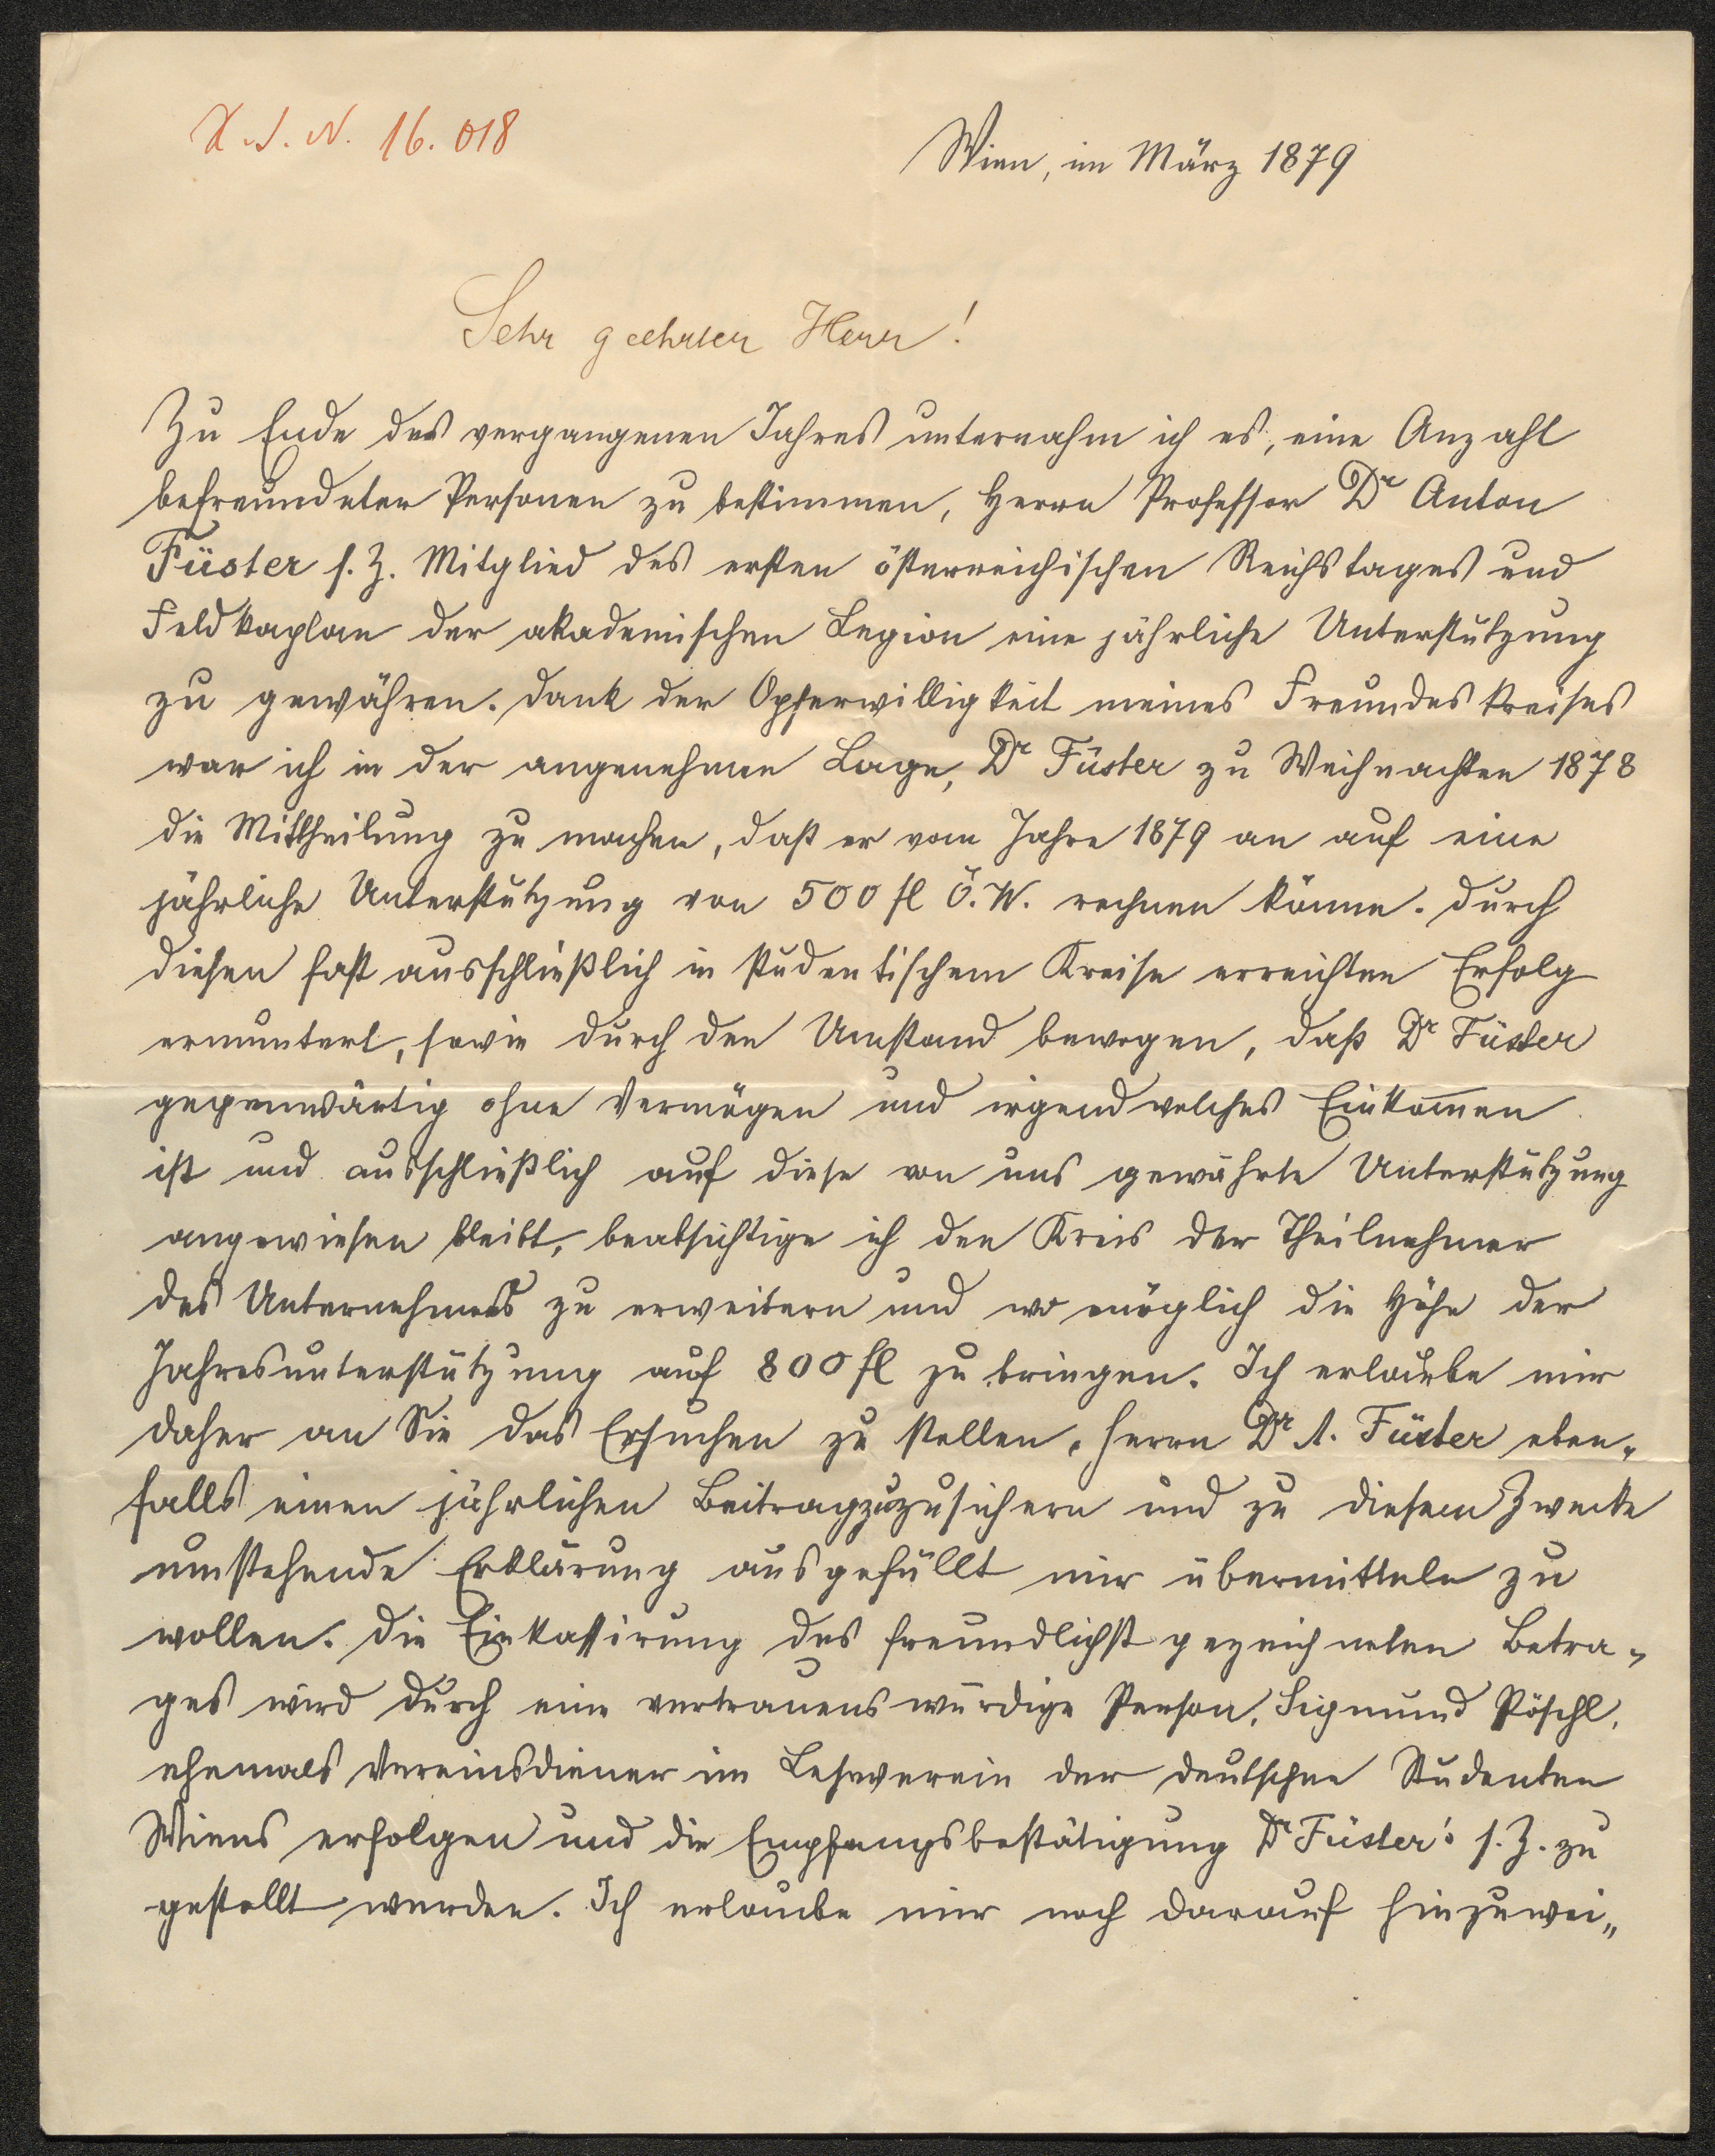 I. J. N. 16.018
Wien, im März 1879
Sehr geehrter Herr!
Zu Ende des vergangenen Jahres unternahm ich es, eine Anzahl
befreundeter Personen zu bestimmen, Herrn Professor Dr Anton
Füster s. Z. Mitglied des ersten österreichischen Reichstages und
Feldkaplan der akademischen Legion eine jährliche Unterstützung
zu gewähren. Dank der Opferwilligkeit meines Freundeskreises
war ich in der angenehmen Lage, Dr Füster zu Weihnachten 1878
die Mittheilung zu machen, daß er vom Jahre 1879 an auf eine
jährliche Unterstützung von 500 fl Ö. W. rechnen könne. Durch
diesen fast ausschließlich in studentischem Kreise erreichten Erfolg
ermuntert, sowie durch den Umstand bewogen, daß Dr Füster
gegenwärtig ohne Vermögen und irgend welches Einkom̄en
ist und ausschließlich auf diese von uns gewährte Unterstützung
angewiesen bleibt, beabsichtige ich den Kreis der Theilnehmer
des Unternehmens zu erweitern und wo möglich die Höhe der
Jahresunterstützung auf 800 fl zu bringen. Ich erlaube mir
daher an Sie das Ersuchen zu stellen, Herrn Dr A. Füster eben-
falls einen jährlichen Beitrag zuzusichern und zu diesem Zwecke
umstehende Erklärung ausgefüllt mir übermitteln zu
wollen. Die Einkassirung des freundlichst gezeichneten Betra-
ges wird durch eine vertrauenswürdige Person, Sigmund Pöschl,
ehemals Vereinsdiener im Leseverein der deutschen Studenten
Wiens erfolgen und die Empfangsbestätigung Dr Füster's s. Z. zu
gestellt werden. Ich erlaube mir noch darauf hinzuwei„